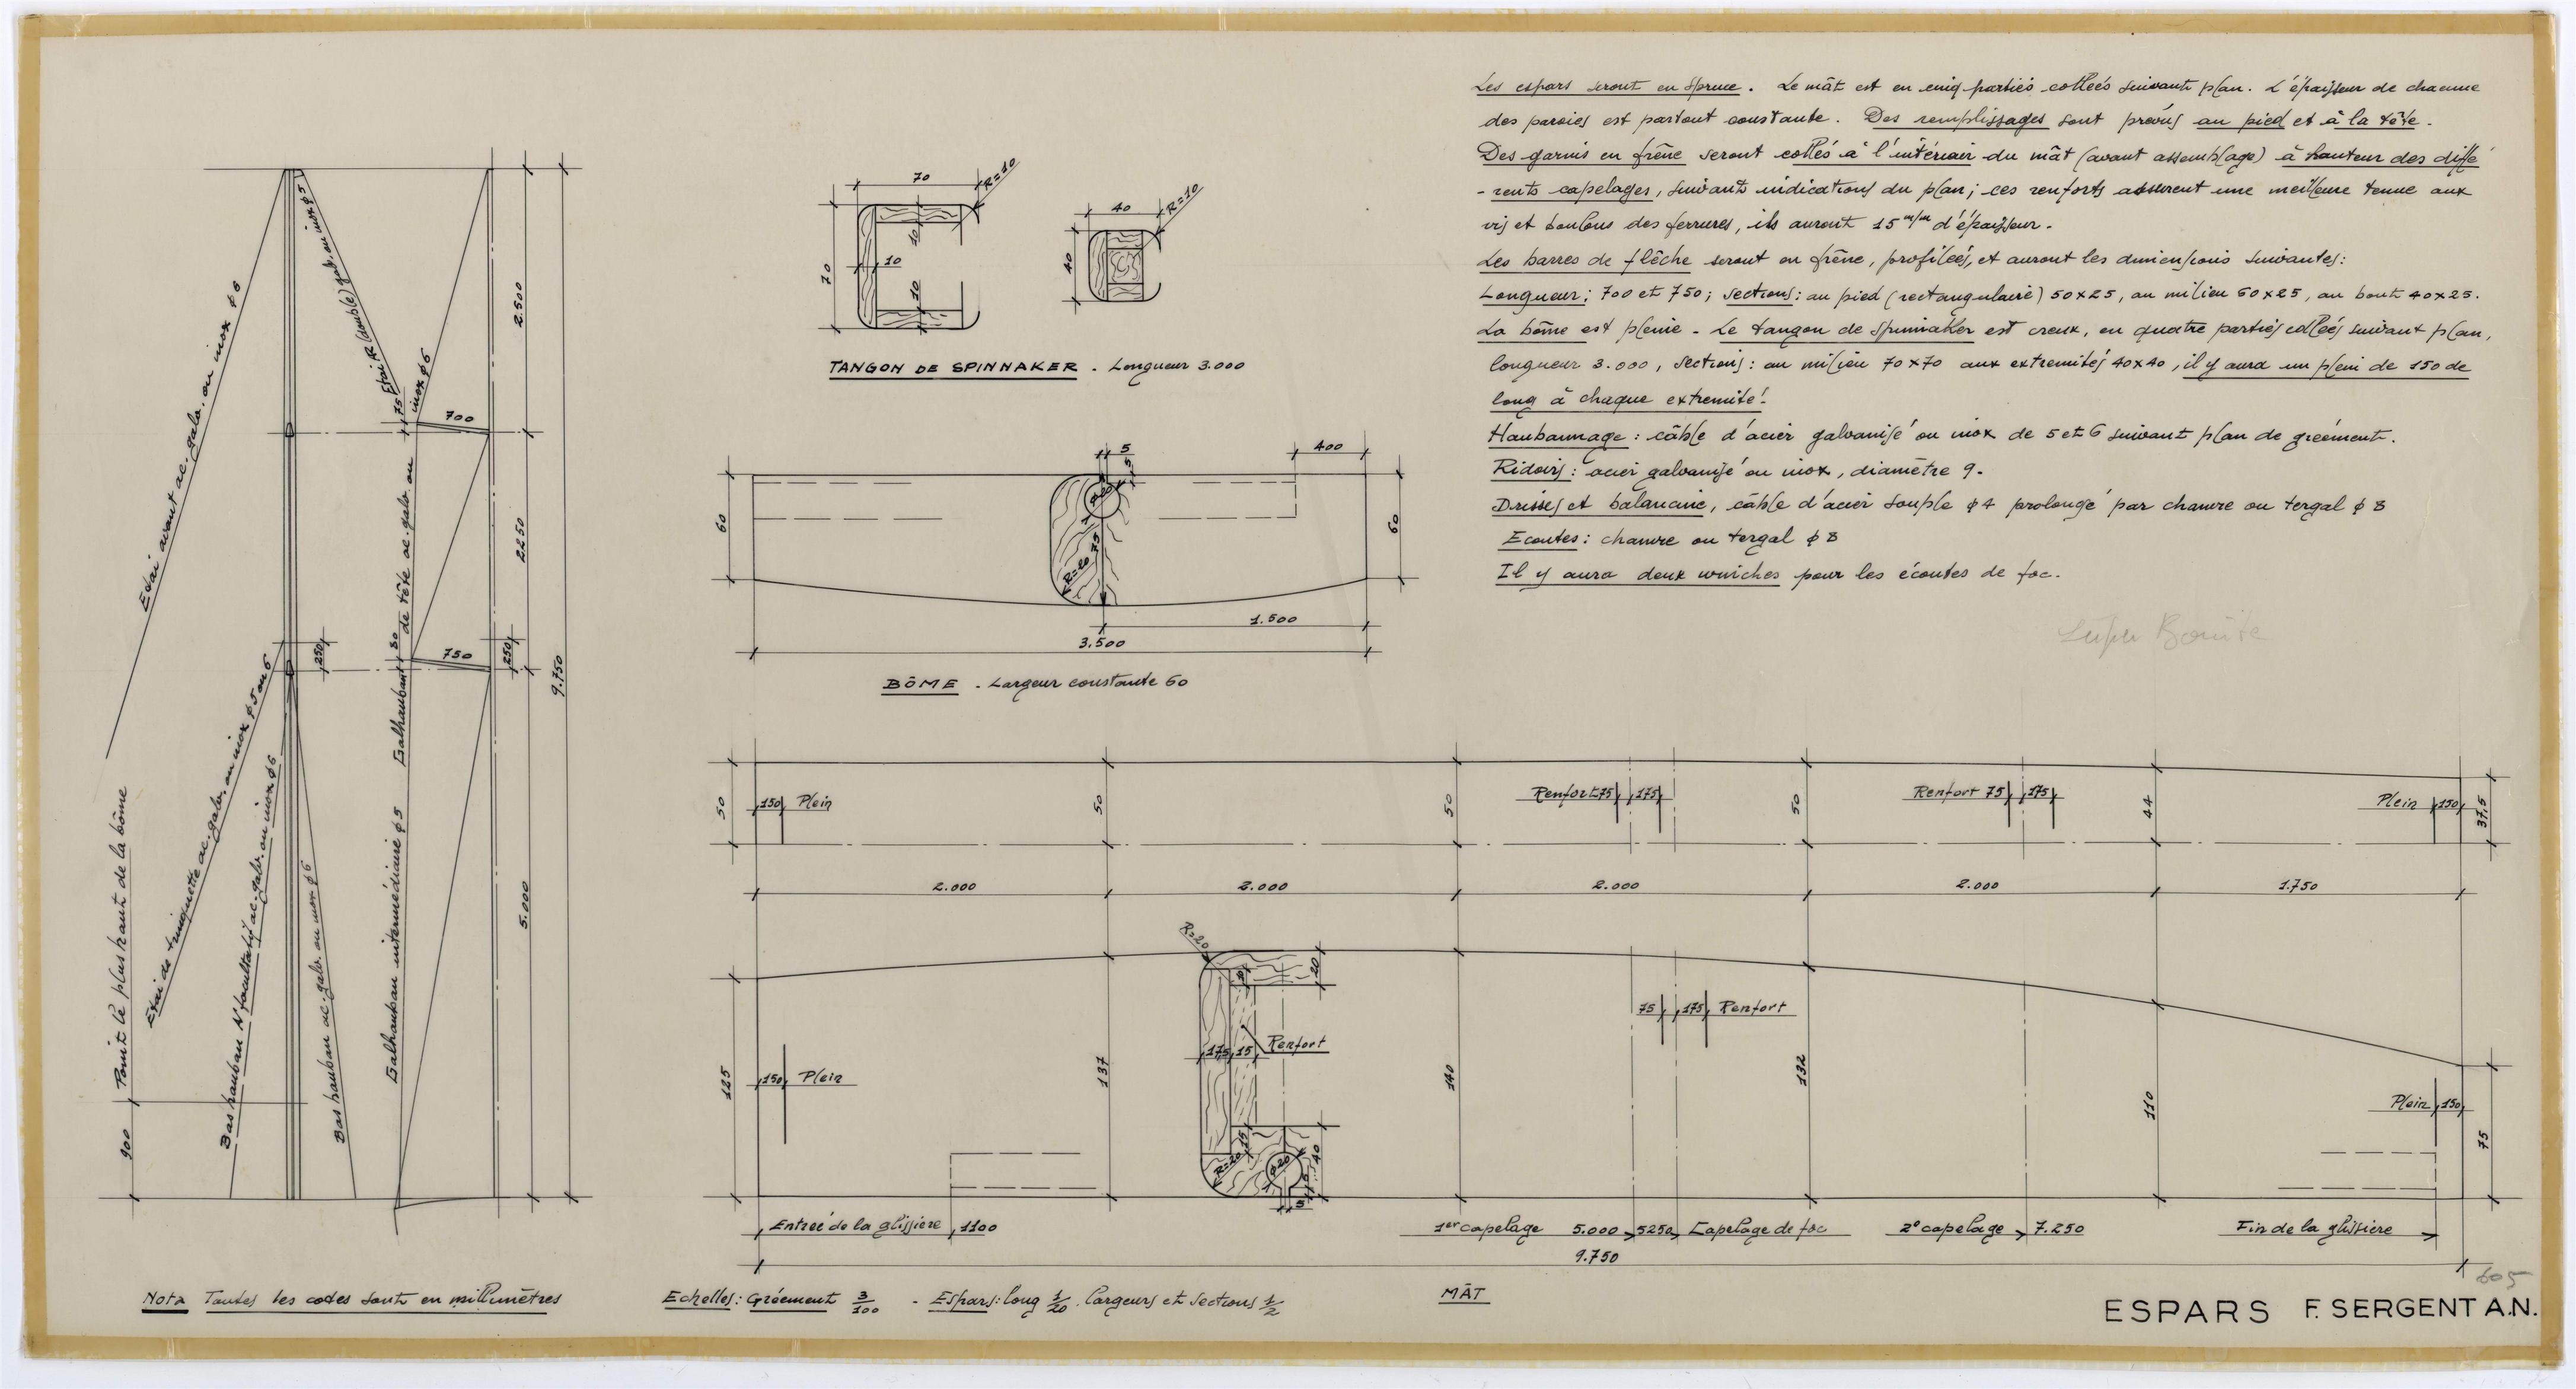 Les espars seront en Spruce. Le mât est en cinq parties collées suivant plan. L'épaisseur de chacune
des parois est partout constante. Des remplissages sont prévus au pied et à la tête.
Des garnis en frêne seront collés à l'intérieur du mât (avant assemblage) à hauteur des diffé
-rents capelages, suivant indications du plan; ces renforts assurent une meilleure tenue aux
vis et boulons des ferrures, ils auront 15 m/m d'épaisseur.
Les barres de flêche seront en frêne, profilées, et auront les dimensions suivantes:
Longueur: 700 et 750; sections: au pied (rectangulaire) 50x25, au milieu 60x25, au bout 40x25.
La bôme est pleine - Le tangon de Spinnaker est creux, en quatre parties collées suivant plan,
longueur 3.000, sections: au milieu 70x70 aux extremités 40x40, il y aura un plein de 150 de
long à chaque extremité.
Haubannage: câble d'acier galvanisé ou inox de 5 et 6 suivant plan de greément.
Ridoirs: acier galvanisé ou inox, diamètre 9.
Drisses et balancine, câble d'acier souple ϕ 4 prolongé par chanvre ou tergal ϕ 8
Ecoutes: chanvre ou tergal ϕ 8
Il y aura deux winches pour les écoutes de foc.
70
R=10
70
10
10
10
40
R=10
40
TANGON DE SPINNAKER. Longueur 3.000
5
400
60
R=20
75
60
1.500
3.500
BÔME. Largeur constante 60
Etai avant ac. galv. ou inox ϕ 6
Etai R (double) galv. ou inox ϕ 5
inox ϕ 6
75
700
2.500
Galhauban de tête ac. galv. ou
80
750
250
250
2250
9.750
Etai de trinquette ac. galv. ou inox ϕ 5 ou 6
Bas hauban AV facultatif ac. galv. ou inox ϕ 6
Bas hauban ac. galv. ou inox ϕ 6
Galhauban intermédiaire ϕ 5
5.000
Point le plus haut de la bôme
900
50
150 Plein
50
50
Renfort 75 175
50
Renfort 75 175
44
Plein 150
37,5
2.000
2.000
2.000
2.000
1.750
R=20
20
125
150 Plein
137
17,5 15 Renfort
15
R=20
ϕ20
40
5
140
75 175 Renfort
132
110
Plein 150
75
Entrée de la glissière 1100
1er capelage 5.000 5250 Capelage de foc
2e capelage 7.250
Fin de la glissière
9.750
MÂT
Nota Toutes les cotes sont en millimètres
Echelles: Gréement 3/100 - Espars: long 1/20. Largeurs et sections 1/2
605
ESPARS F. SERGENT A.N.